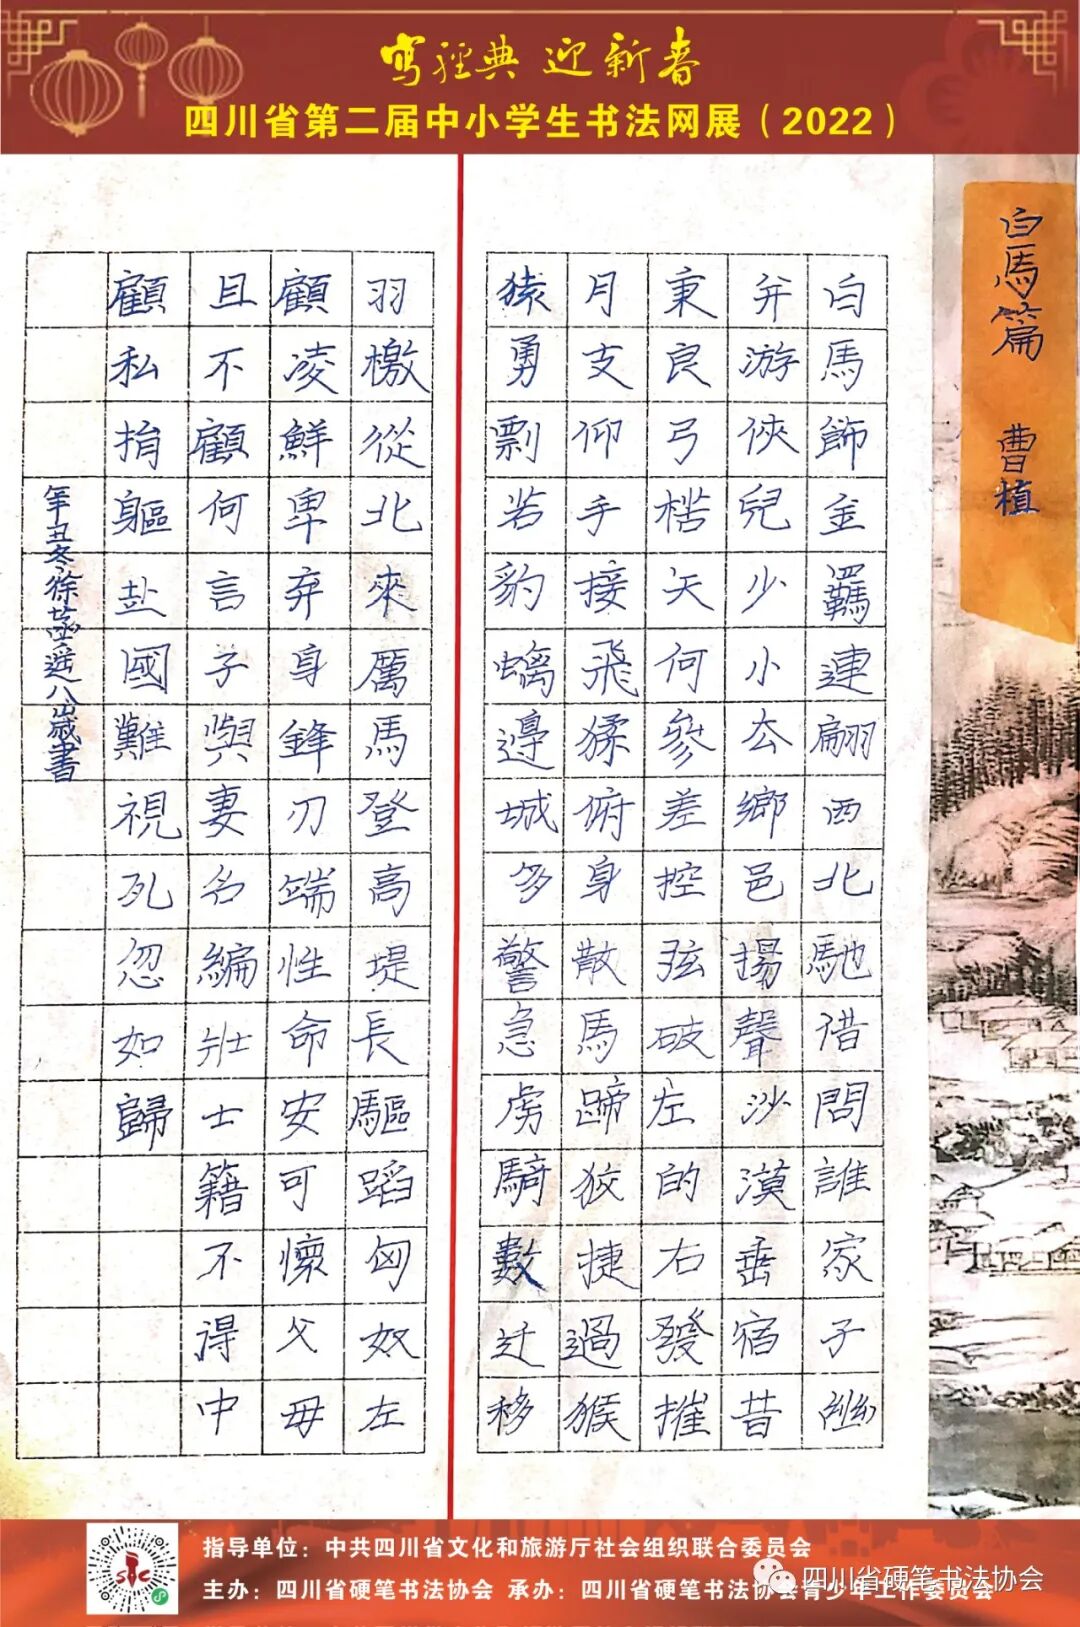 寫經典 迎新春
四川省第二届中小学生书法网展（2022）
白馬篇 曹植
白馬飾金羈連翩西北馳借問誰家子幽
并游俠兒少小去鄉邑揚聲沙漠垂宿昔
秉良弓楛矢何參差控弦破左的右發摧
月支仰手接飛猱俯身散馬蹄狡捷過猴
猿勇剽若豹螭邊城多警急虜騎數迁移
羽檄從北來厲馬登高堤長驅蹈匈奴左
顧凌鮮卑弃身鋒刃端性命安可懷父母
且不顧何言子與妻名編壯士籍不得中
顧私捐軀赴國難視死忽如歸
辛丑冬徐菡遥八歲書
指导单位：中共四川省文化和旅游厅社会组织联合委员会
主办：四川省硬笔书法协会 承办：四川省硬笔书法协会青少年工作委员会
四川省硬笔书法协会